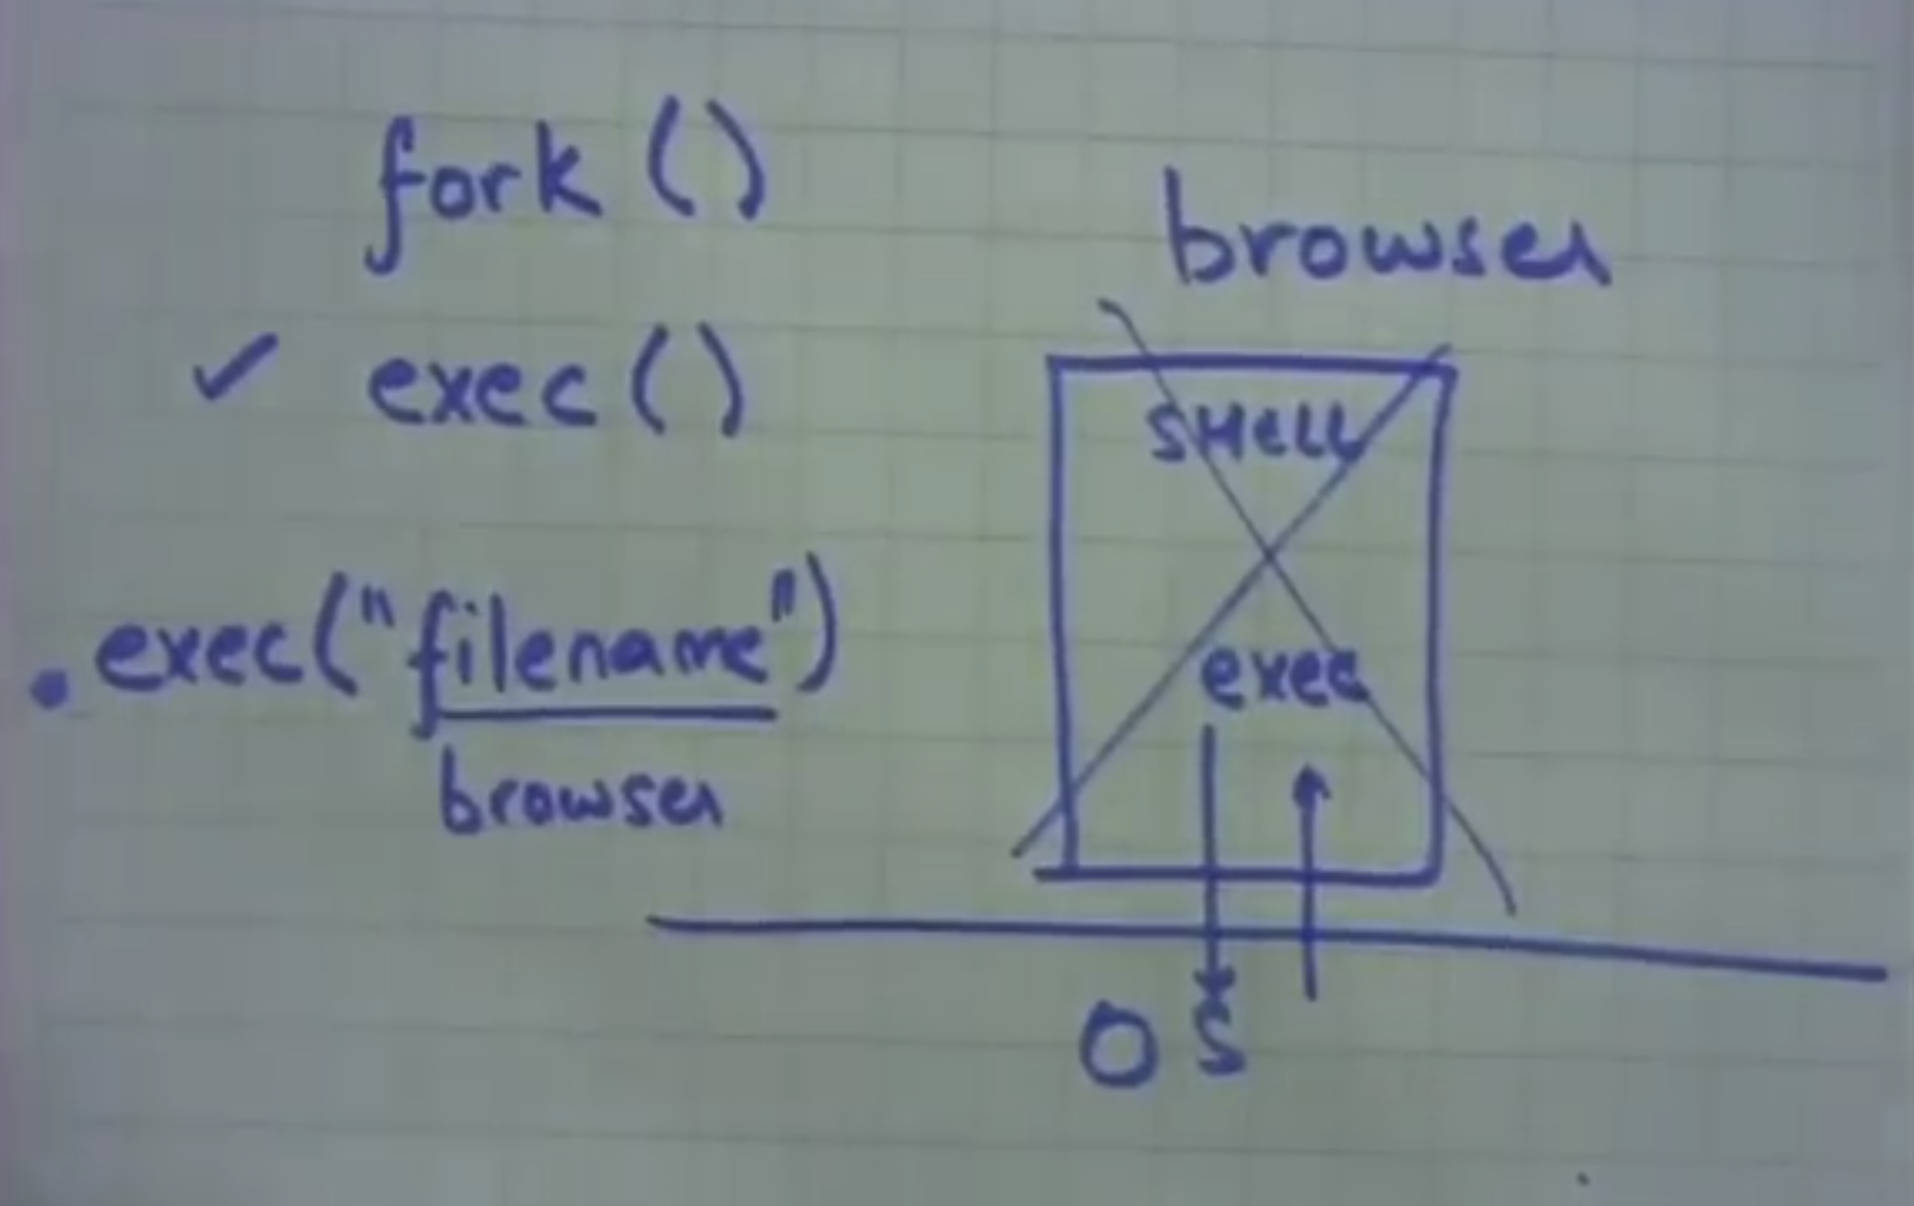 fork ()
✓ exec ()
. exec("filename")
browser
browser
SHELL
exec
OS